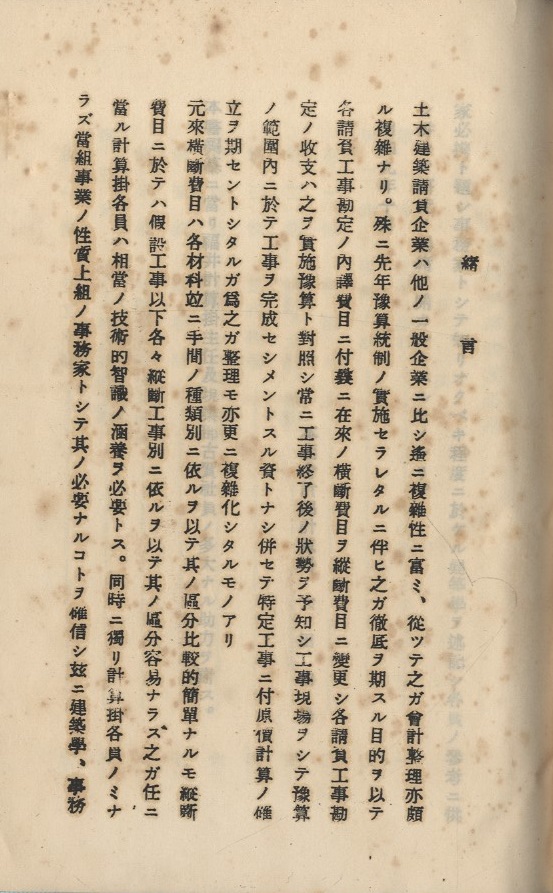 緒言
土木建築請負企業ハ他ノ一般企業ニ比シ遙ニ複雜性ニ富ミ、從ツテ之ガ會計整理亦頗
ル複雜ナリ。殊ニ先年豫算統制ノ實施セラレタルニ伴ヒ之ガ徹底ヲ期スル目的ヲ以テ
各請負工事勘定ノ內譯費目ニ付義ニ在來ノ橫斷費目ヲ縱斷費目ニ變更シ各請負工事勘
定ノ收支ハ之ヲ實施豫算ト對照シ常ニ工事終了後ノ狀勢ヲ予知シ工事現場ヲシテ豫算
ノ範圍內ニ於テ工事ヲ完成セシメントスル資トナシ併セテ特定工事ニ付原價計算ノ確
立ヲ期セントシタルガ爲之ガ整理モ亦更ニ複雜化シタルモノアリ
元來橫斷費目ハ各材料竝ニ手間ノ種類別ニ依ルヲ以テ其ノ區分比較的簡單ナルモ縱斷
費目ニ於テハ假設工事以下各々縱斷工事別ニ依ルヲ以テ其ノ區分容易ナラズ之ガ任ニ
當ル計算掛各員ハ相當ノ技術的智識ノ涵養ヲ必要トス。同時ニ獨リ計算掛各員ノミナ
ラズ當組事業ノ性質上組ノ事務家トシテ其ノ必要ナルコトヲ確信シ玆ニ建築學、事務